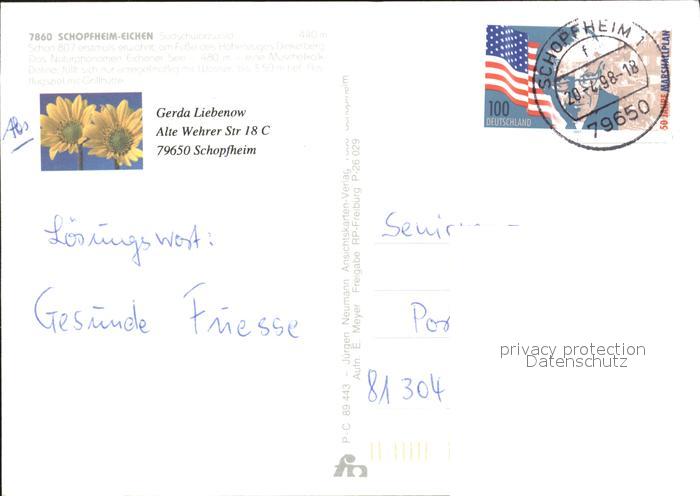 7860 SCHOPFHEIM-EICHEN Südschwarzwald 480 m
Schon 807 erstmals erwähnt, am Fuße des Höhenzuges Dinkelberg.
Das Naturphänomen Eichener See - 480 m - eine Muschelkalk-
Doline, füllt sich nur unregelmäßig mit Wasser, bis 3,50 m tief.
mit Grillhütte
Abs
Gerda Liebenow
Alte Wehrer Str 18 C
79650 Schopfheim
Lösungswort:
Gesunde Fuesse
P-C 89 443 - Jürgen Neumann Ansichtskarten-Verlag Schopfheim
Aufn. E. Meyer Freigabe RP-Freiburg P-26 029
100
DEUTSCHLAND
50 JAHRE MARSHALLPLAN
SCHOPFHEIM 1
f
98-18
79650
Senior
Por
81304
privacy protection
Datenschutz